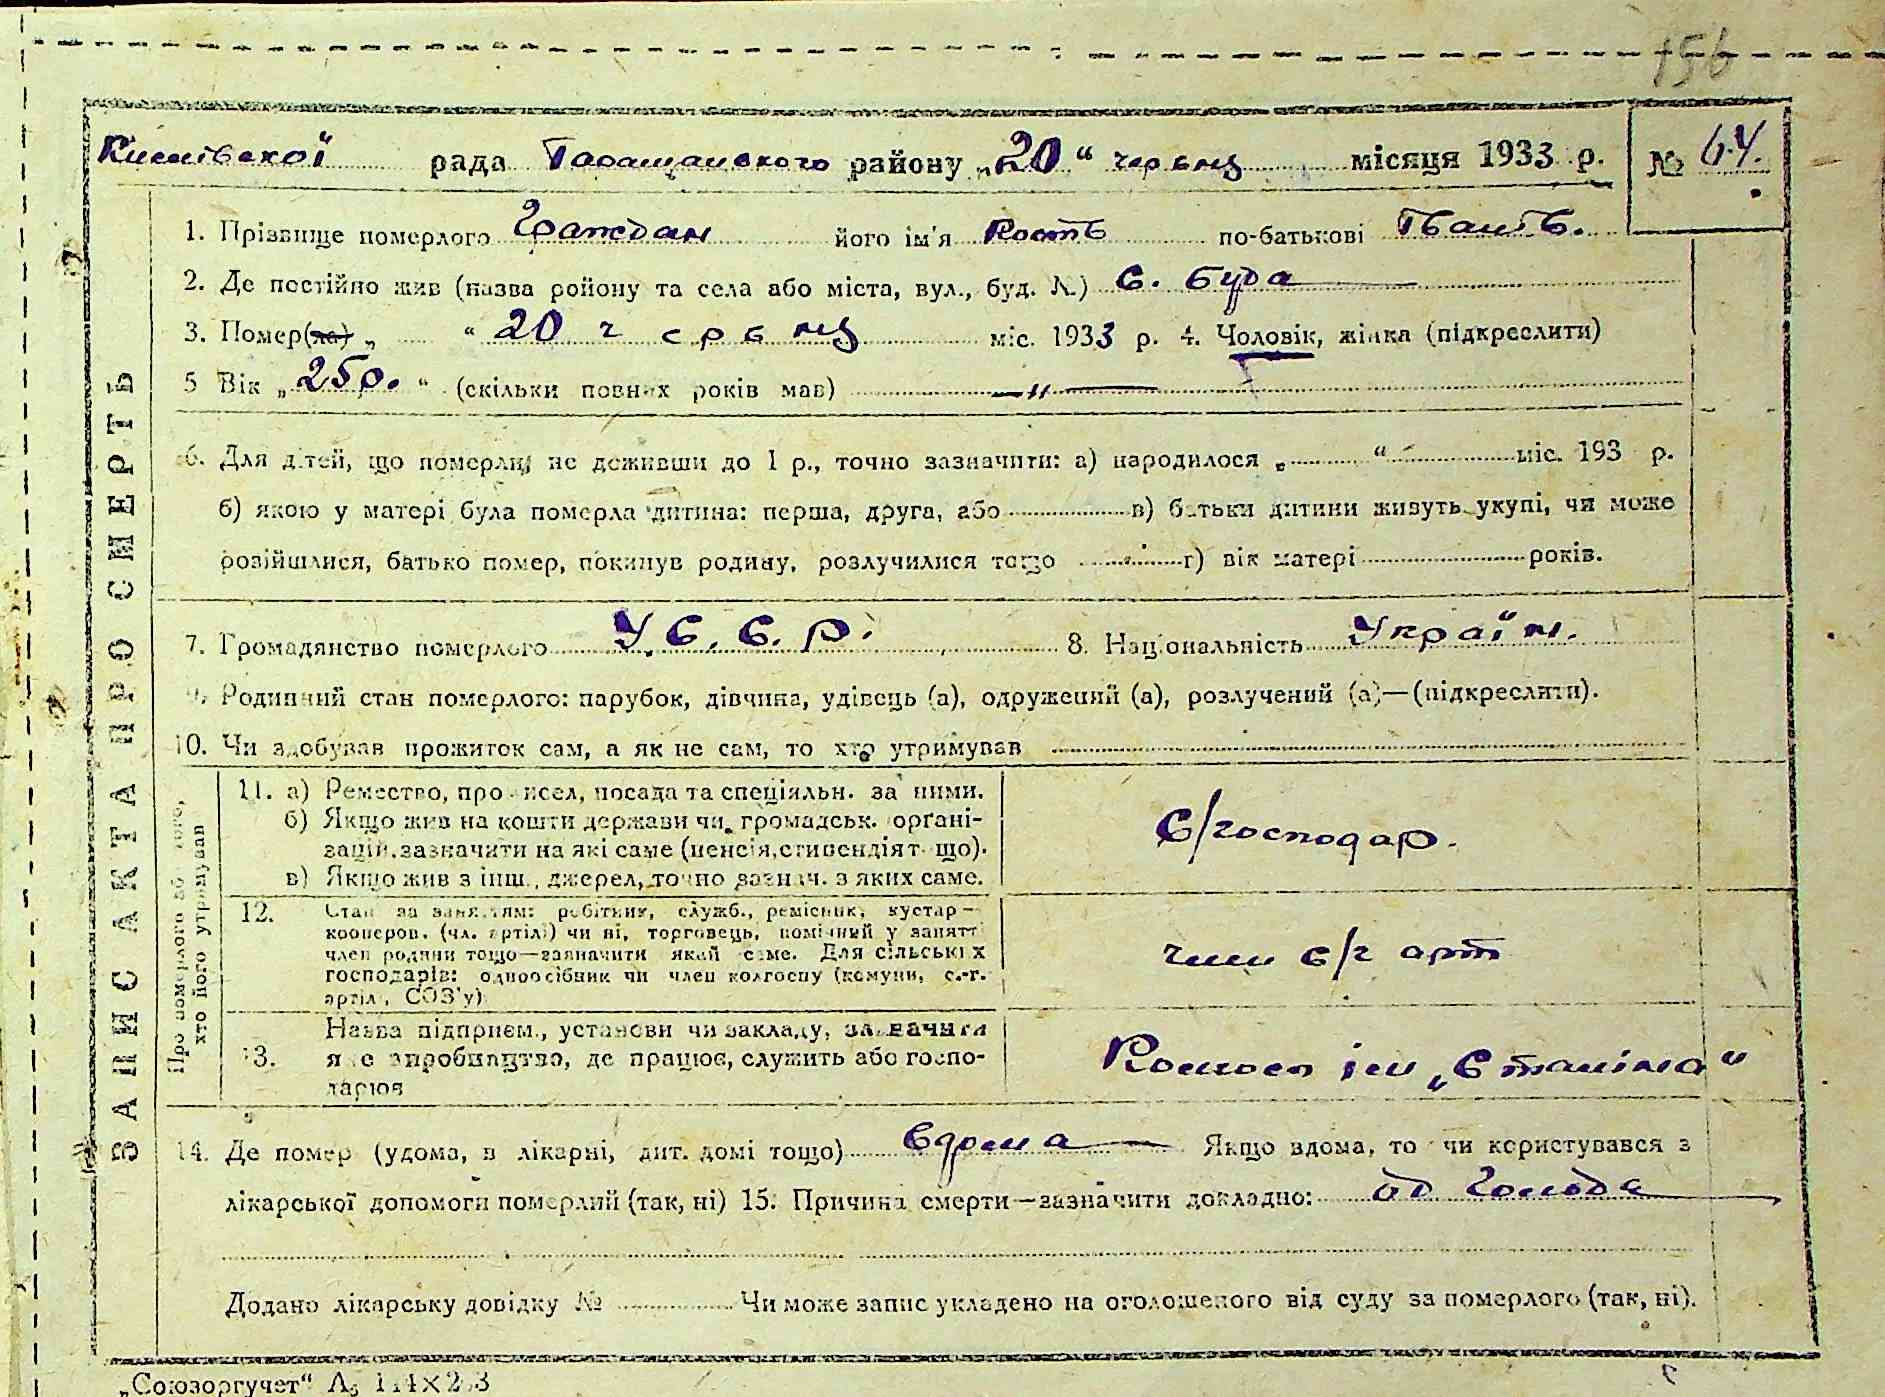 156
рада Таращанського району „20“ червня місяця 1933 р. № 64.
1. Прізвище померлого Граждан його ім'я Кость по-батькові
2. Де постійно жив (назва ройону та села або міста, вул., буд. №) с. Буда
3. Помер(ла) „ “ 20 червня міс. 1933 р. 4. Чоловік, жінка (підкреслити)
5 Вік „25р.“ (скільки повних років мав) — „ —
6. Для дітей, що померли, не доживши до 1 р., точно зазначити: а) народилося „ “ міс. 193 р.
б) якою у матері була померла дитина: перша, друга, або в) батьки дитини живуть укупі, чи може
розійшлися, батько помер, покинув родину, розлучилися тощо г) вік матері років.
7. Громадянство померлого У.С.С.Р. 8. Національність Україн.
9. Родинний стан померлого: парубок, дівчина, удівець (а), одружений (а), розлучений (а)—(підкреслити).
10. Чи здобував прожиток сам, а як не сам, то хто утримував
ЗАПИС АКТА ПРО СМЕРТЬ
Про померлого або того,
хто його утримував
11. а) Ремество, промисел, посада та спеціяльн. за ними.
б) Якщо жив на кошти держави чи громадськ. органі-
зацій, зазначити на які саме (пенсія, стипендія тощо).
в) Якщо жив з інш., джерел, точно зазнач. з яких саме.
С/господар.
12. Стан за заняттям: робітник, служб., ремісник, кустар—
кооперов. (чл. артілі) чи ні, торговець, помічний у занятт
член родини тощо—зазначити який саме. Для сільських
господарів: одноосібник чи член колгоспу (комуни, с.-г.
артілі, СОЗ'у)
член с/г арт
13. Назва підприєм., установи чи закладу, зазначити
яке виробництво, де працює, служить або госпо-
дарює
Колгосп ім „Сталіна“
14. Де помер (удома, в лікарні, дит. домі тощо) вдома — Якщо вдома, то чи користувався з
лікарської допомоги померлий (так, ні) 15. Причина смерти—зазначити докладно: од Голода
Додано лікарську довідку № Чи може запис укладено на оголошеного від суду за померлого (так, ні).
„Союзоргучет“